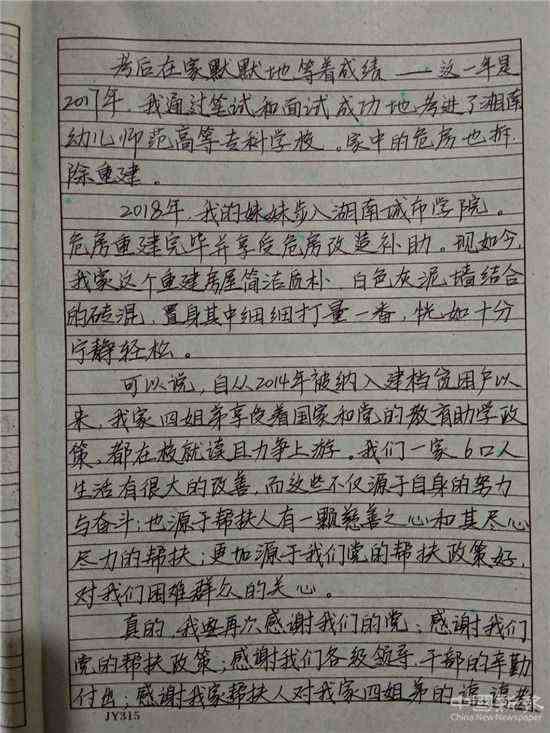 考后在家默默地等着成绩——这一年是
2017年,我通过笔试和面试成功地考进了湘南
幼儿师范高等专科学校。家中的危房也拆
除重建。
2018年,我的妹妹步入湖南城市学院。
危房重建完毕并享受危房改造补助。现如今,
我家这个重建房屋简洁质朴、白色灰泥墙结合
的砖混,置身其中细细打量一番,恍如十分
宁静轻松。
可以说,自从2014年被纳入建档贫困户以
来,我家四姐弟享受着国家和党的教育助学政
策,都在校就读且力争上游。我们一家6口人
生活有很大的改善,而这些不仅源于自身的努力
与奋斗;也源于帮扶人有一颗慈善之心和其尽心
尽力的帮扶;更加源于我们党的帮扶政策好,
对我们困难群众的关心。
真的,我要再次感谢我们的党;感谢我们
党的帮扶政策;感谢我们各级领导、干部的辛勤
付出;感谢我家帮扶人对我家四姐弟的谆谆教
JY315
中国新报
China New Newspaper